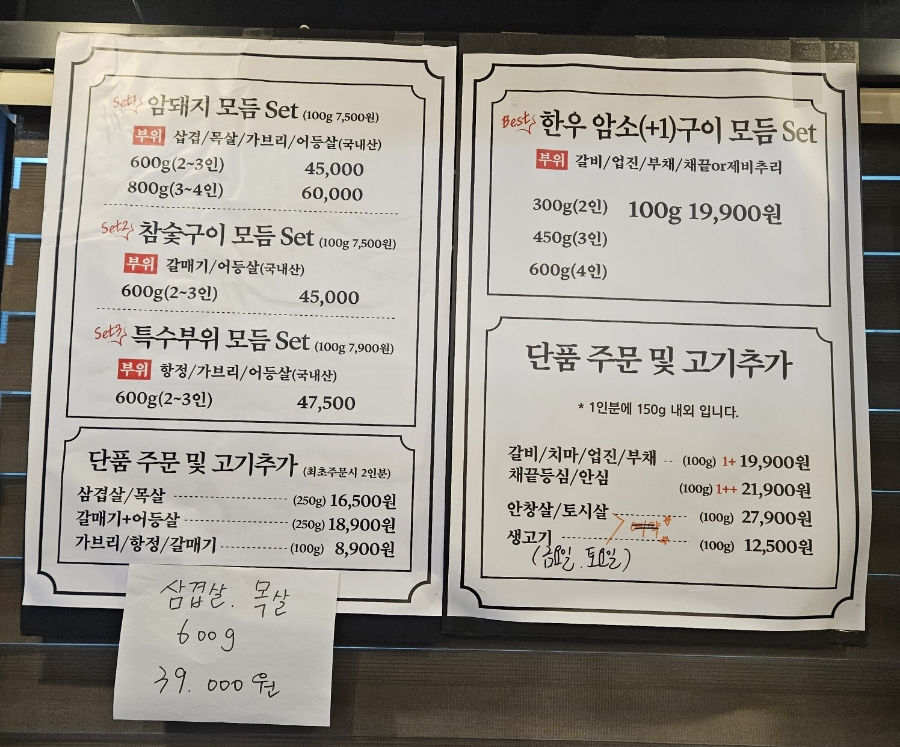 Set1 암돼지 모듬 Set (100g 7,500원)
부위 삼겹/목살/가브리/어등살(국내산)
600g(2~3인) 45,000
800g(3~4인) 60,000
Set2 참숯구이 모듬 Set (100g 7,500원)
부위 갈매기/어등살(국내산)
600g(2~3인) 45,000
Set3 특수부위 모듬 Set (100g 7,900원)
부위 항정/가브리/어등살(국내산)
600g(2~3인) 47,500
단품 주문 및 고기추가 (최초주문시 2인분)
삼겹살/목살 (250g) 16,500원
갈매기+어등살 (250g) 18,900원
가브리/항정/갈매기 (100g) 8,900원
삼겹살. 목살
600g
39.000원
Best 한우 암소(+1)구이 모듬 Set
부위 갈비/업진/부채/채끝or제비추리
300g(2인) 100g 19,900원
450g(3인)
600g(4인)
단품 주문 및 고기추가
* 1인분에 150g 내외 입니다.
갈비/치마/업진/부채 (100g) 1+ 19,900원
채끝등심/안심 (100g) 1++ 21,900원
안창살/토시살 (100g) 27,900원
생고기 (100g) 12,500원
(금요일. 토요일)